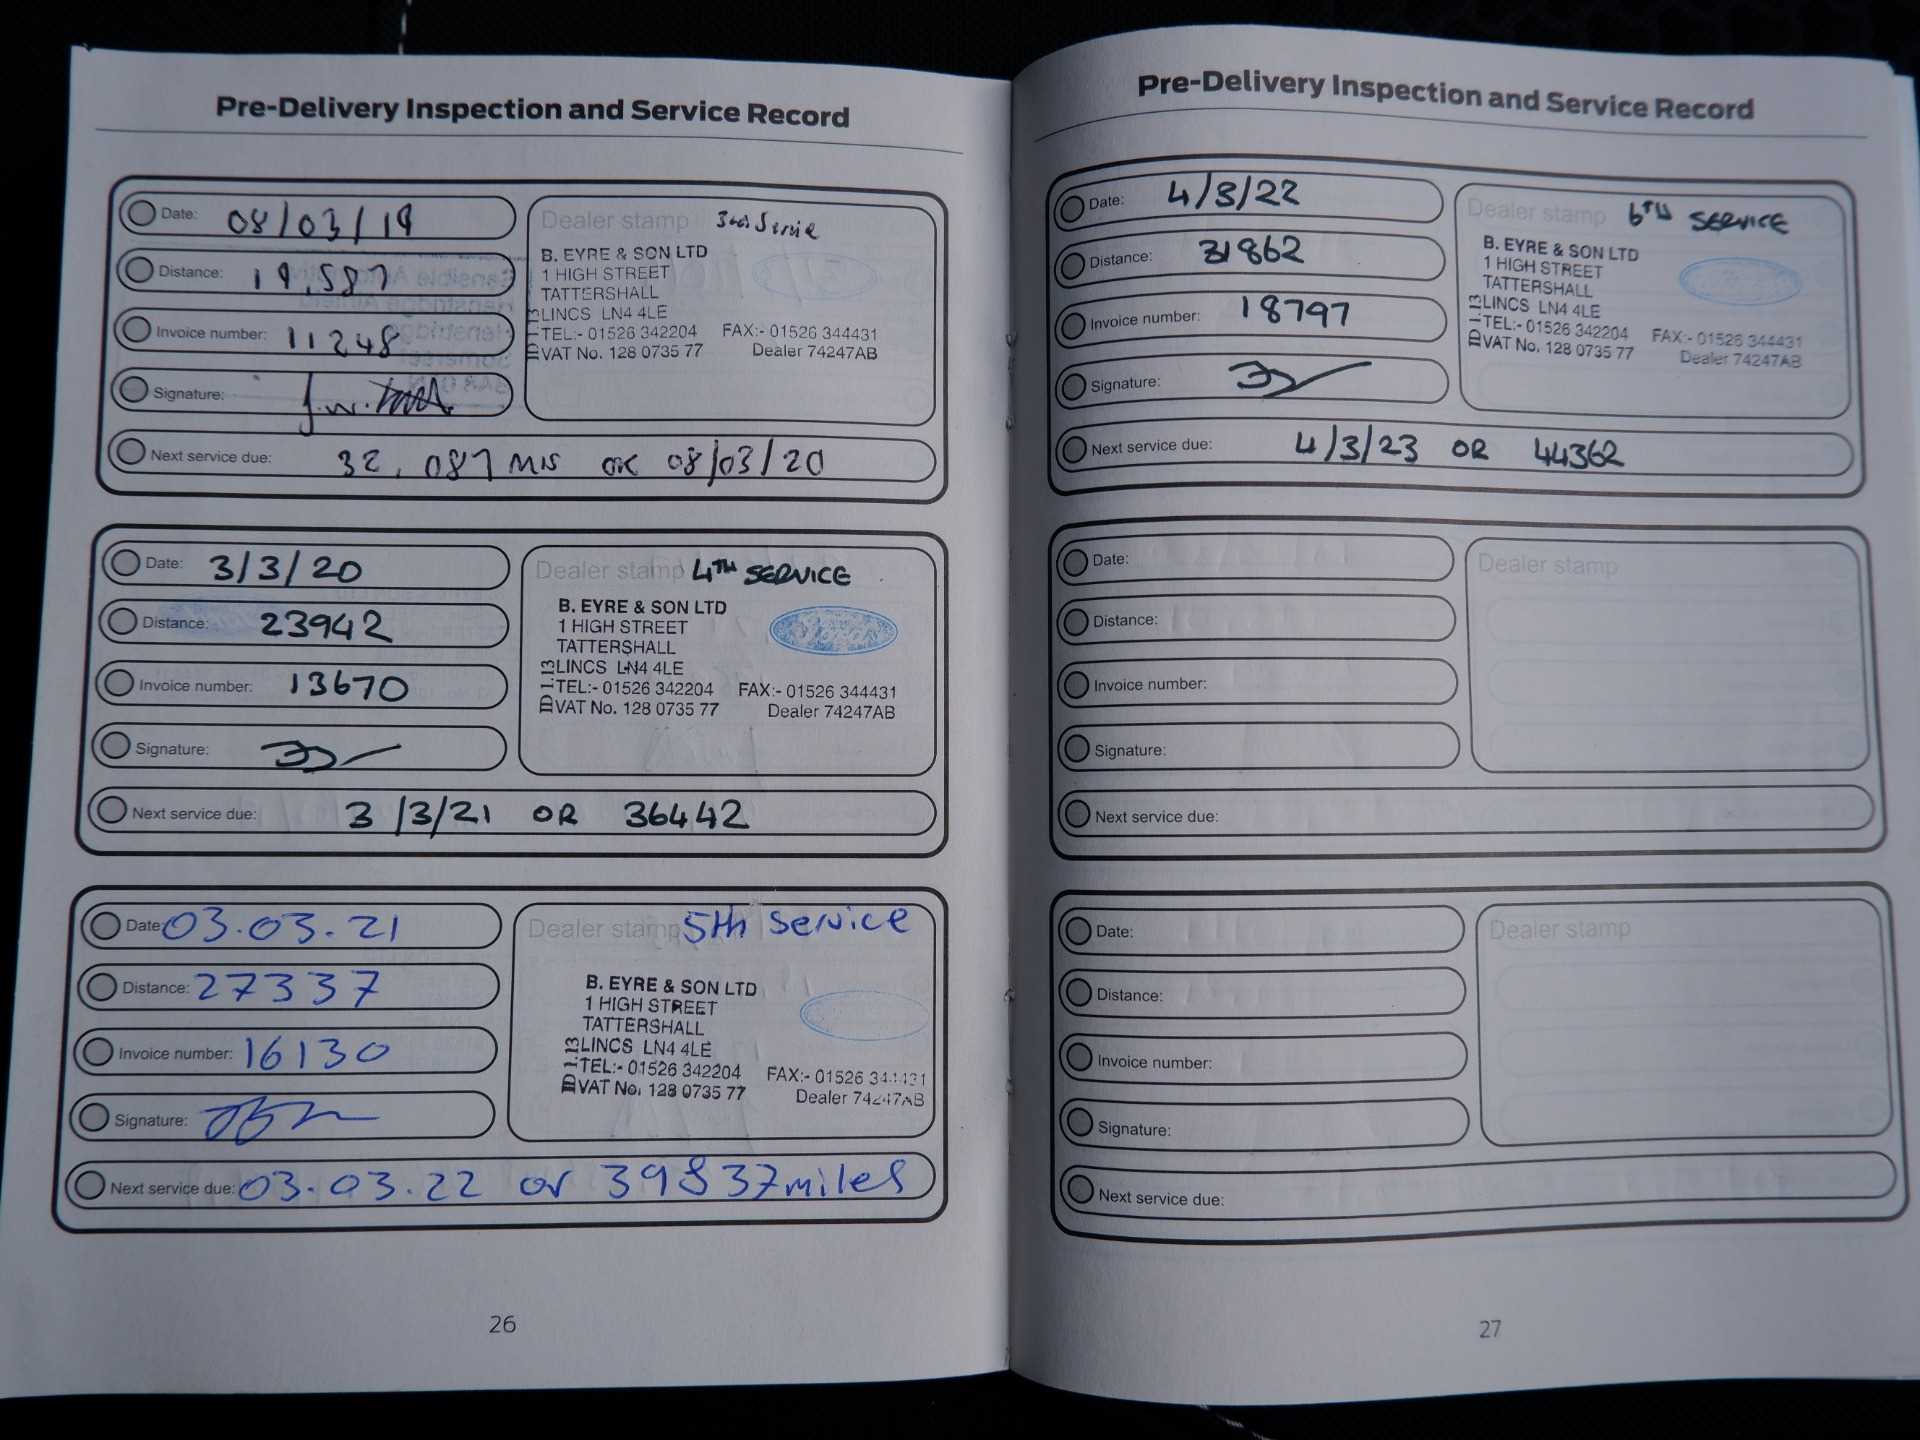 Pre-Delivery Inspection and Service Record
Date: 08/03/19
Distance: 19,587
Invoice number: 11248
Signature:
Dealer stamp 3rd Service
B. EYRE & SON LTD
1 HIGH STREET
TATTERSHALL
LINCS LN4 4LE
TEL:- 01526 342204 FAX:- 01526 344431
VAT No. 128 0735 77 Dealer 74247AB
Next service due: 32,087 MLS OR 08/03/20
Date: 3/3/20
Distance: 23942
Invoice number: 13670
Signature:
Dealer stamp 4TH SERVICE
B. EYRE & SON LTD
1 HIGH STREET
TATTERSHALL
LINCS LN4 4LE
TEL:- 01526 342204 FAX:- 01526 344431
VAT No. 128 0735 77 Dealer 74247AB
Next service due: 3/3/21 OR 36442
Date: 03.03.21
Distance: 27337
Invoice number: 16130
Signature:
Dealer stamp 5th service
B. EYRE & SON LTD
1 HIGH STREET
TATTERSHALL
LINCS LN4 4LE
TEL:- 01526 342204 FAX:- 01526 344431
VAT No. 128 0735 77 Dealer 74247AB
Next service due: 03.03.22 or 39837 miles
26
Pre-Delivery Inspection and Service Record
Date: 4/3/22
Distance: 31862
Invoice number: 18797
Signature:
Dealer stamp 6TH SERVICE
B. EYRE & SON LTD
1 HIGH STREET
TATTERSHALL
LINCS LN4 4LE
TEL:- 01526 342204 FAX:- 01526 344431
VAT No. 128 0735 77 Dealer 74247AB
Next service due: 4/3/23 OR 44362
Date:
Distance:
Invoice number:
Signature:
Dealer stamp
Next service due:
Date:
Distance:
Invoice number:
Signature:
Dealer stamp
Next service due:
27